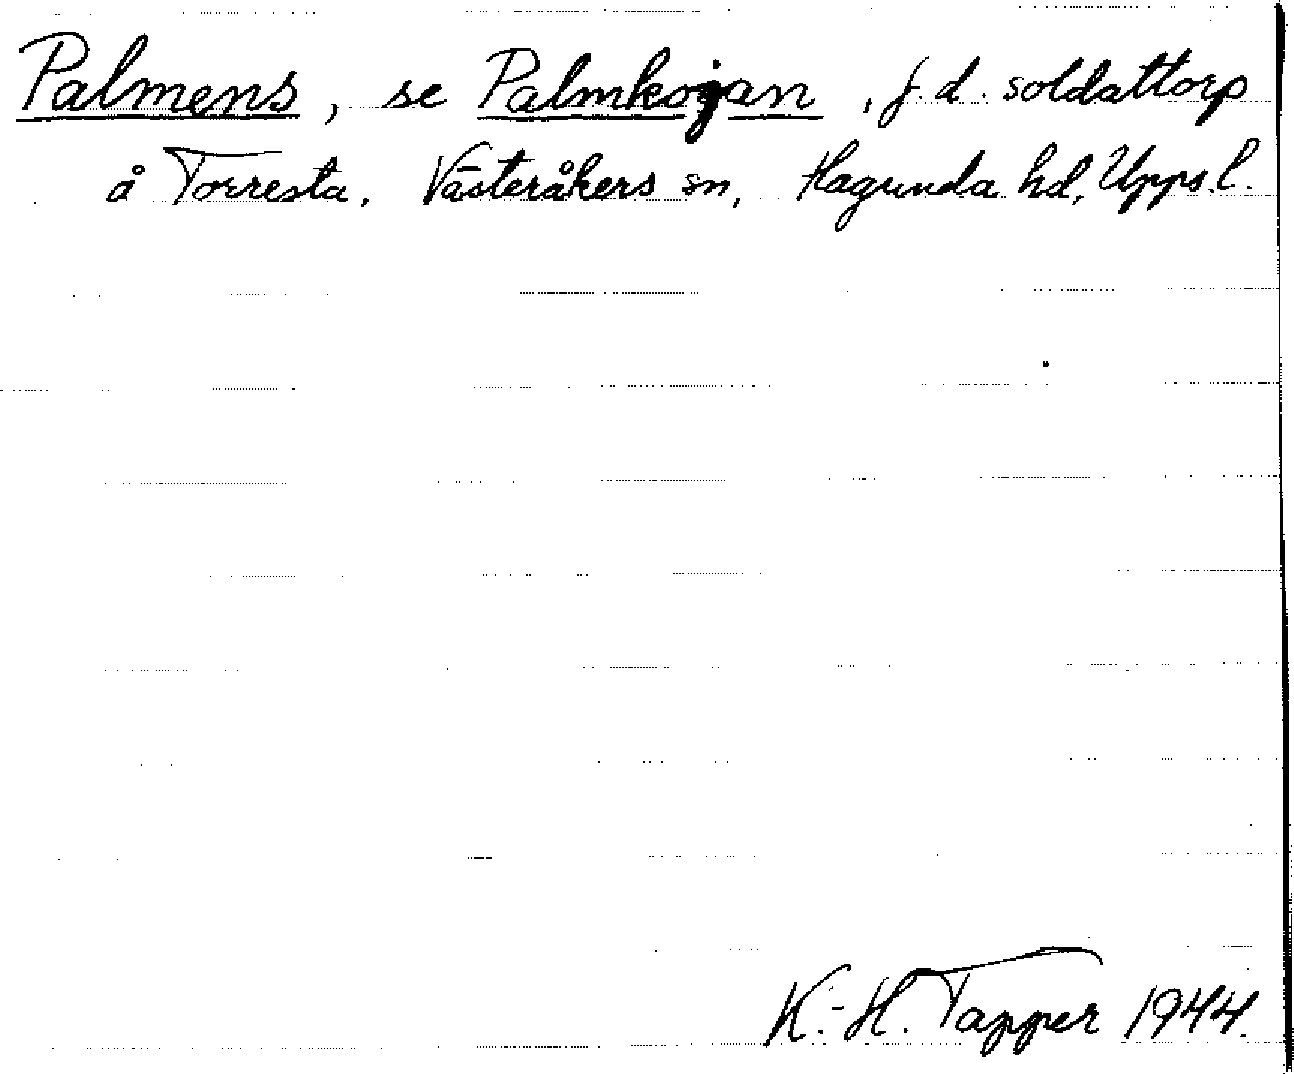 Palmens, se Palmkojan, f.d. soldattorp
å Torresta, Västeråkers sn, Hagunda hd, Upps.l.
K.-H. Tapper 1944.